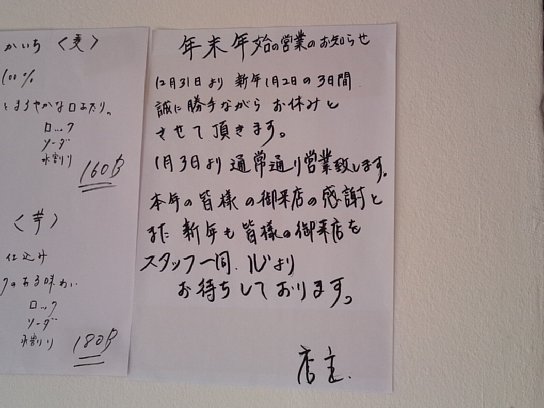 かいち 〈麦〉
100%
まろやかな口あたり。
ロック
ソーダ
水割り
160B
〈芋〉
仕込み
のある味わい
ロック
ソーダ
水割り
180B
年末年始の営業のお知らせ
12月31日より 新年1月2日の3日間
誠に勝手ながら お休みと
させて頂きます。
1月3日より通常通り営業致します。
本年の皆様の御来店の感謝と
また 新年も皆様の御来店を
スタッフ一同、心より
お待ちしております。
店主.